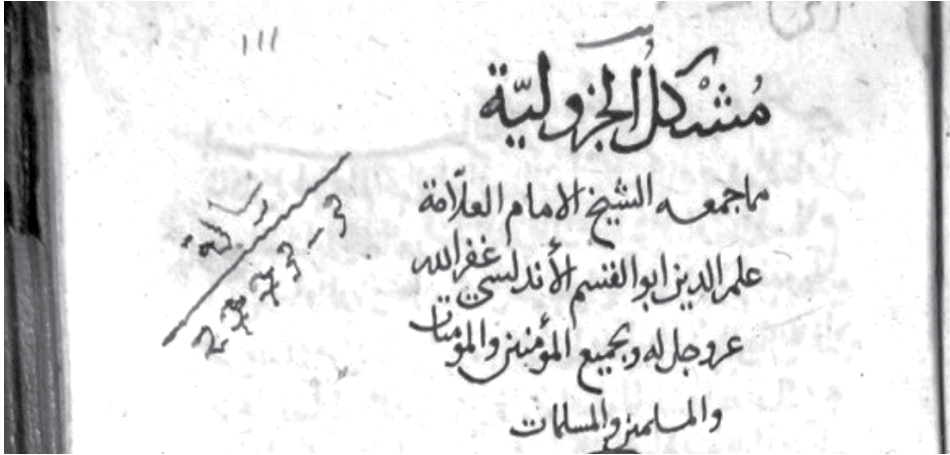 ١١١
مُشْكِلُ الجُزُوليّة
مما جمعه الشيخ الامام العلّامة
علم الدين ابو القسم الأندلسي غفر الله
عز وجل له ولجميع المؤمنين والمؤمنات
والمسلمين والمسلمات